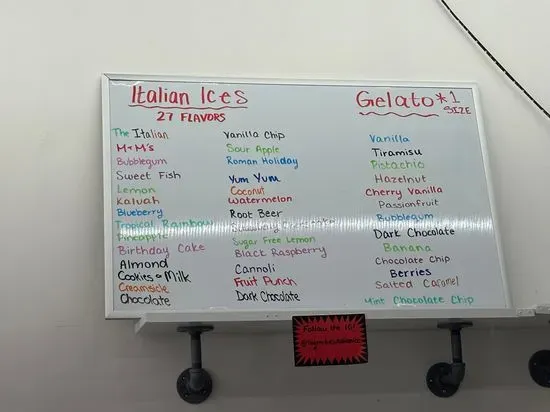 Italian Ices
27 FLAVORS
The Italian
M+M's
Bubblegum
Sweet Fish
Lemon
Kaluah
Blueberry
Tropical Rainbow
Pineapple
Birthday Cake
Almond
Cookies + Milk
Creamsicle
Chocolate
Vanilla Chip
Sour Apple
Roman Holiday
Yum Yum
Coconut
Watermelon
Root Beer
Sugar Free Lemon
Black Raspberry
Cannoli
Fruit Punch
Dark Chocolate
Gelato *1
SIZE
Vanilla
Tiramisu
Pistachio
Hazelnut
Cherry Vanilla
Passionfruit
Bubblegum
Dark Chocolate
Banana
Chocolate Chip
Berries
Salted Caramel
Mint Chocolate Chip
Follow the IG!